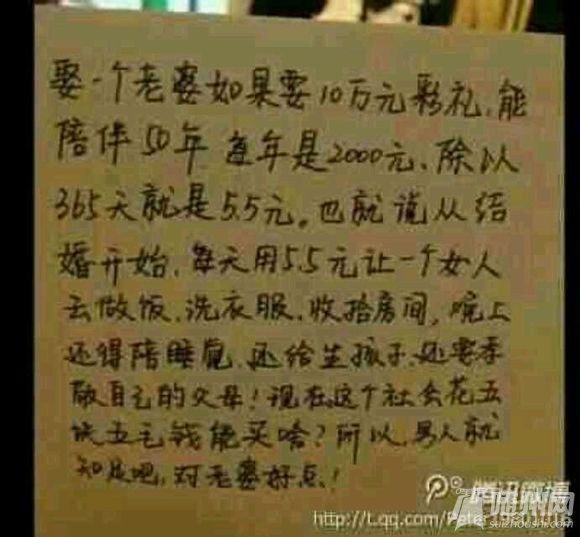 娶一个老婆如果要10万元彩礼,能
陪伴50年 每年是2000元、除以
365天就是5.5元。也就说从结
婚开始,每天用5.5元让一个女人
去做饭、洗衣服、收拾房间,晚上
还得陪睡觉、还给生孩子、还要孝
敬自己的父母!现在这个社会花五
块五毛钱能买啥?所以,男人就
知足吧,对老婆好点!
腾讯微博
http://t.qq.com/Peter
随州网
suizhou